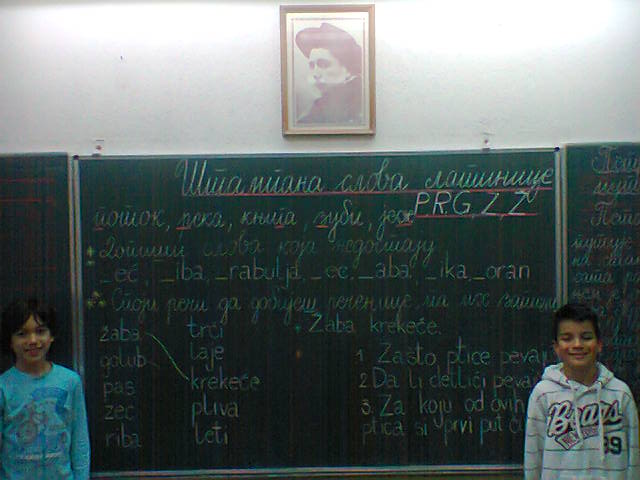 Штампана слова латинице
P, R, G, Z, Ž
поток, река, књига, зуби, јеж
Допиши слова која недостају
_eč, _iba, _rabulja, _ec, _aba, _ika, _oran
Споји речи да добијеш реченице, па их запиши
žaba trči Žaba krekeće.
golub laje 1. Zašto ptice pevaj
pas krekeće 2. Da li detlići pevaj
zec pliva 3. Za koju od ovih
riba leti ptica si prvi put ču
Bears
89